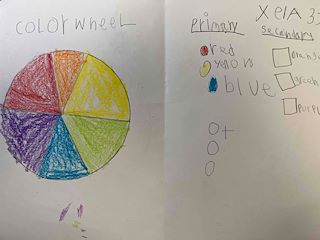 color wheel
Primary
red
yellow
blue
Secondary
orange
green